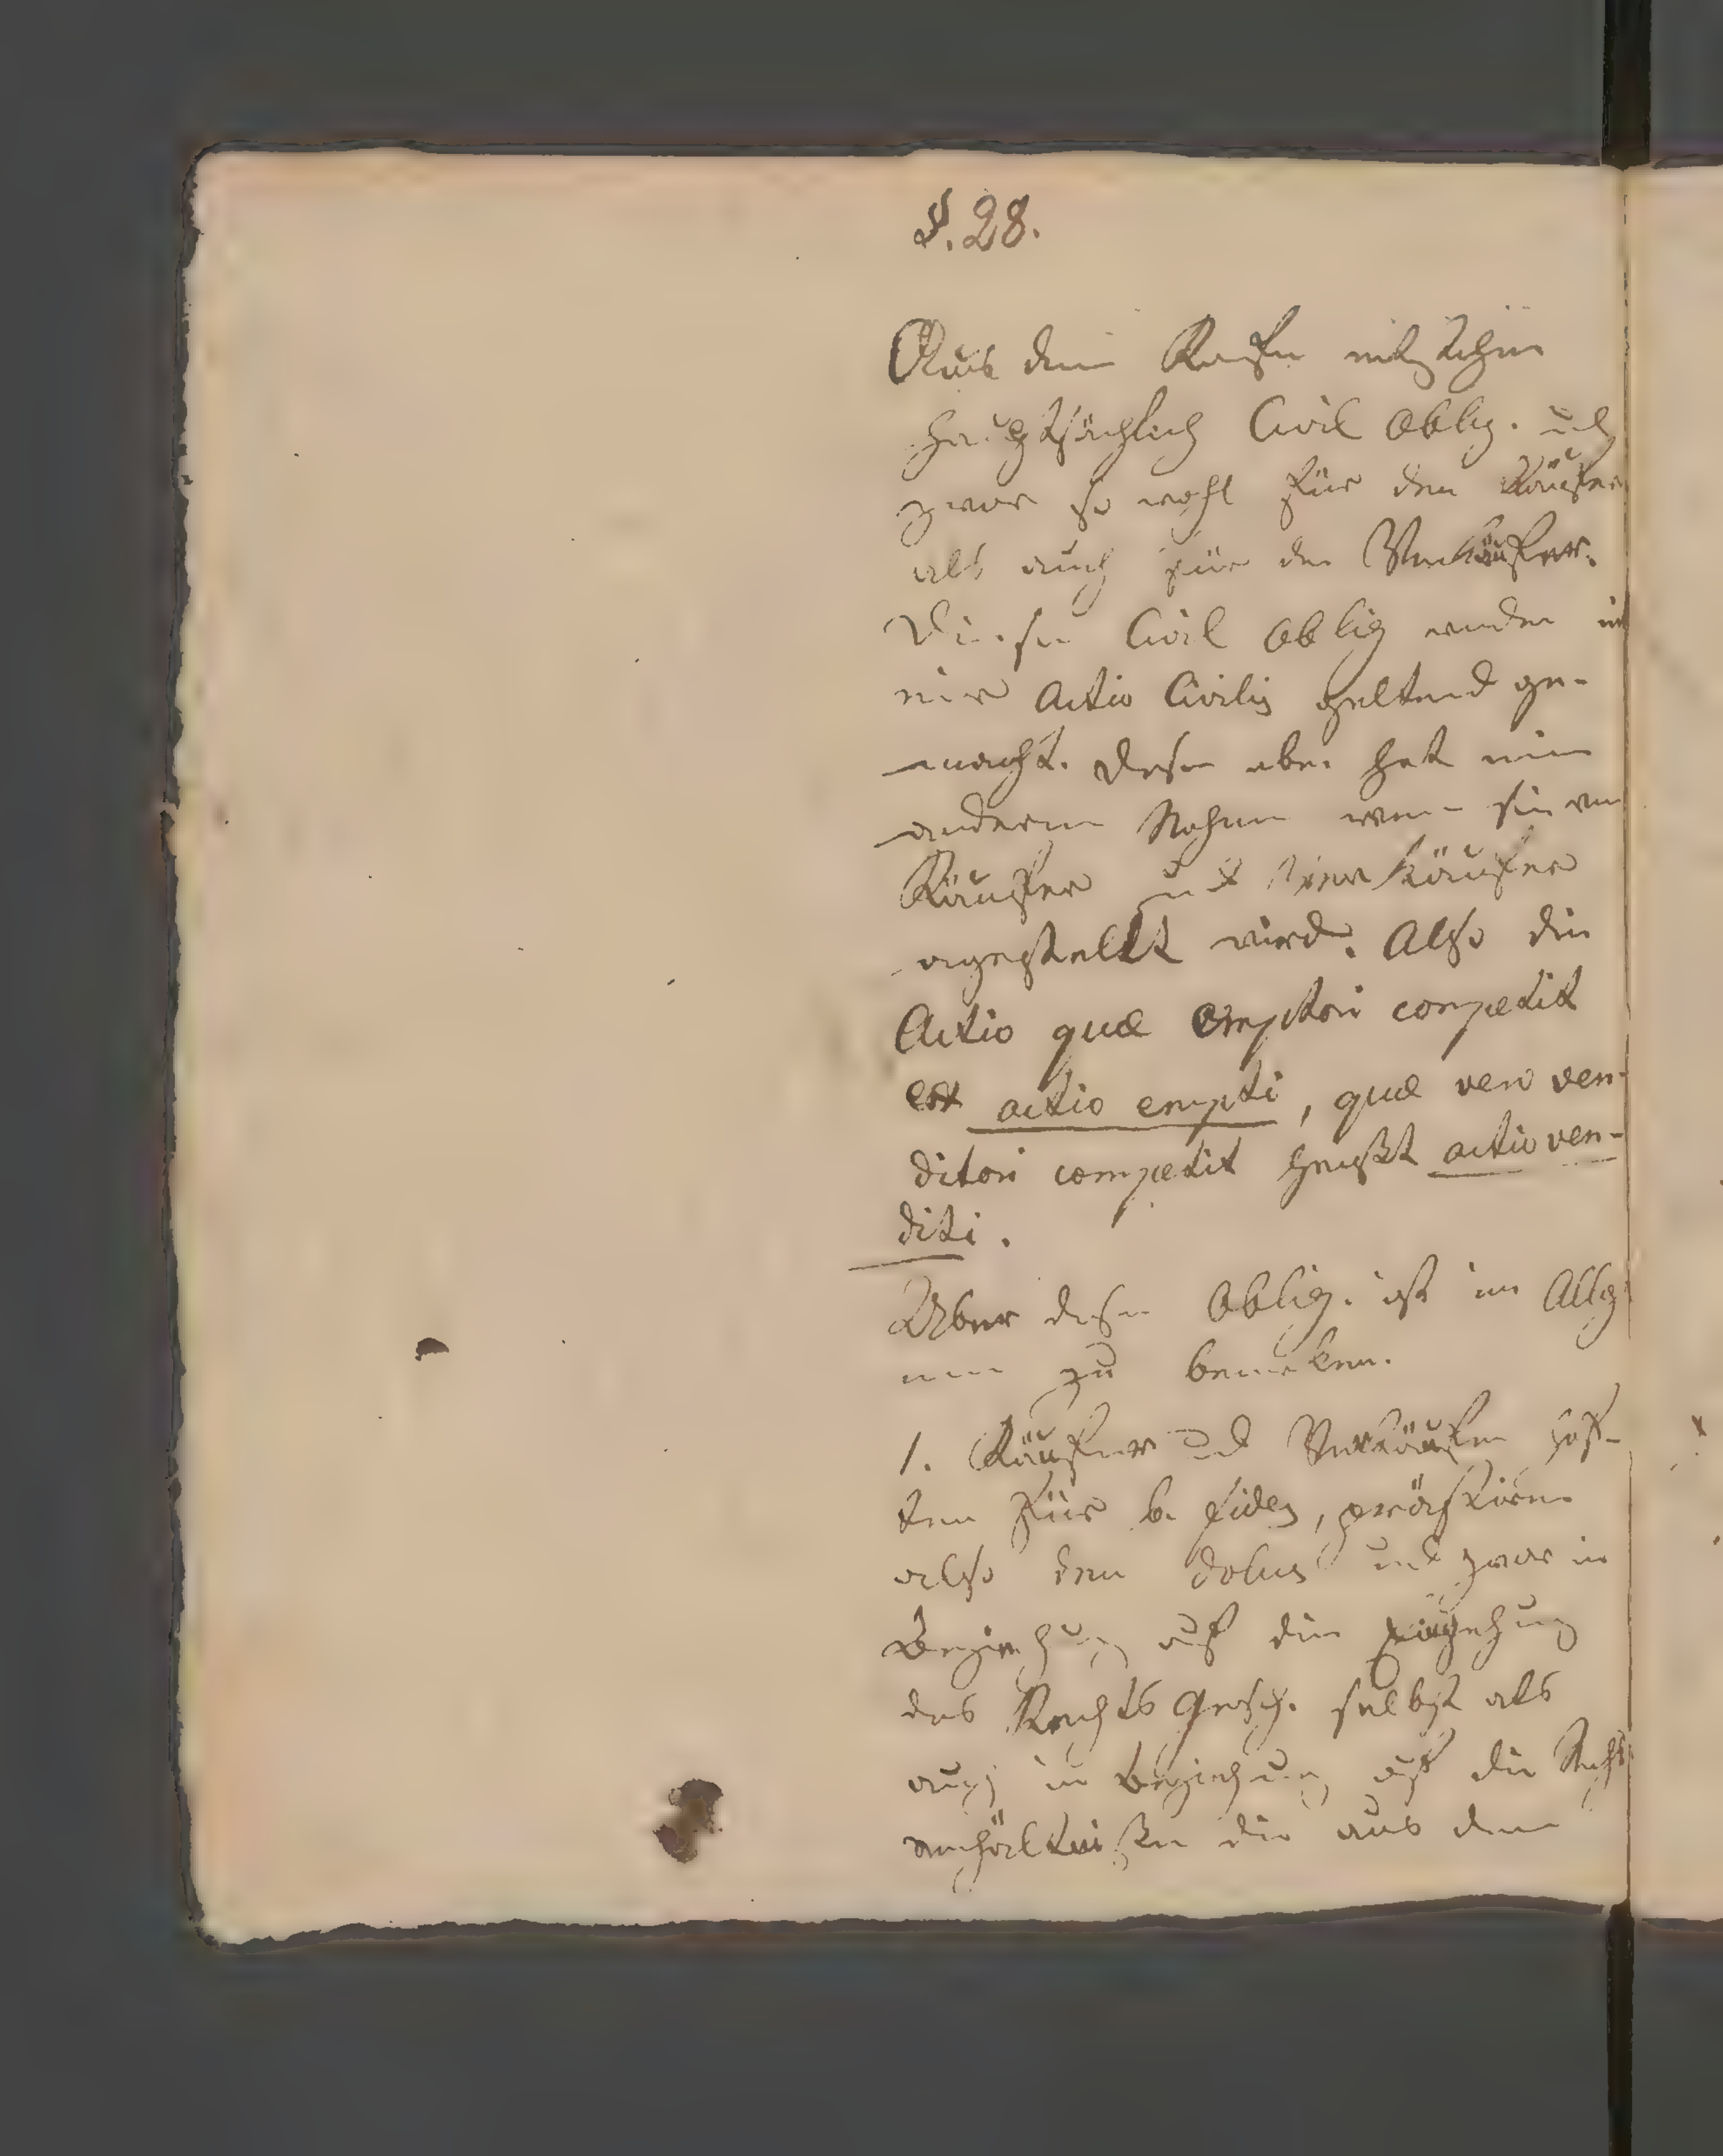 §. 28.
Aus dem Kaufe entstehen
hauptsächlich Civil Oblig. und
zwar so wohl für den Käufer
als auch für den Verkäufer.
Diese Civil Oblig werden
eine Actio Civilis geltend ge-
macht. Diese aber hat einen
anderen Nahmen wenn sie vom
Käufer und Verkäufer
agestellt wird. Also die
Actio quæ Emptori competit
est actio empti, quæ vero ven-
ditori competit heißt actio ven-
diti.
Über diese Oblig. ist im Allge
mein zu bemerken.
1. Käufer und Verkäufer haf-
ten für b. fides, prästiren
also den dolus und zwar in
Beziehung auf die Eingehung
des Rechts Gesch. selbst als
auch in Beziehung auf die Rechts
verhältnißen die aus dem